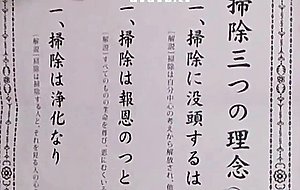 掃除三つの理念
一、掃除に没頭するは
〔解説〕掃除は自分中心の考えから解放され、他
一、掃除は報恩のつと
〔解説〕すべてのものの生命を尊び、恩にむくい
一、掃除は浄化なり
〔解説〕掃除は掃除する人と、それを見る人の心